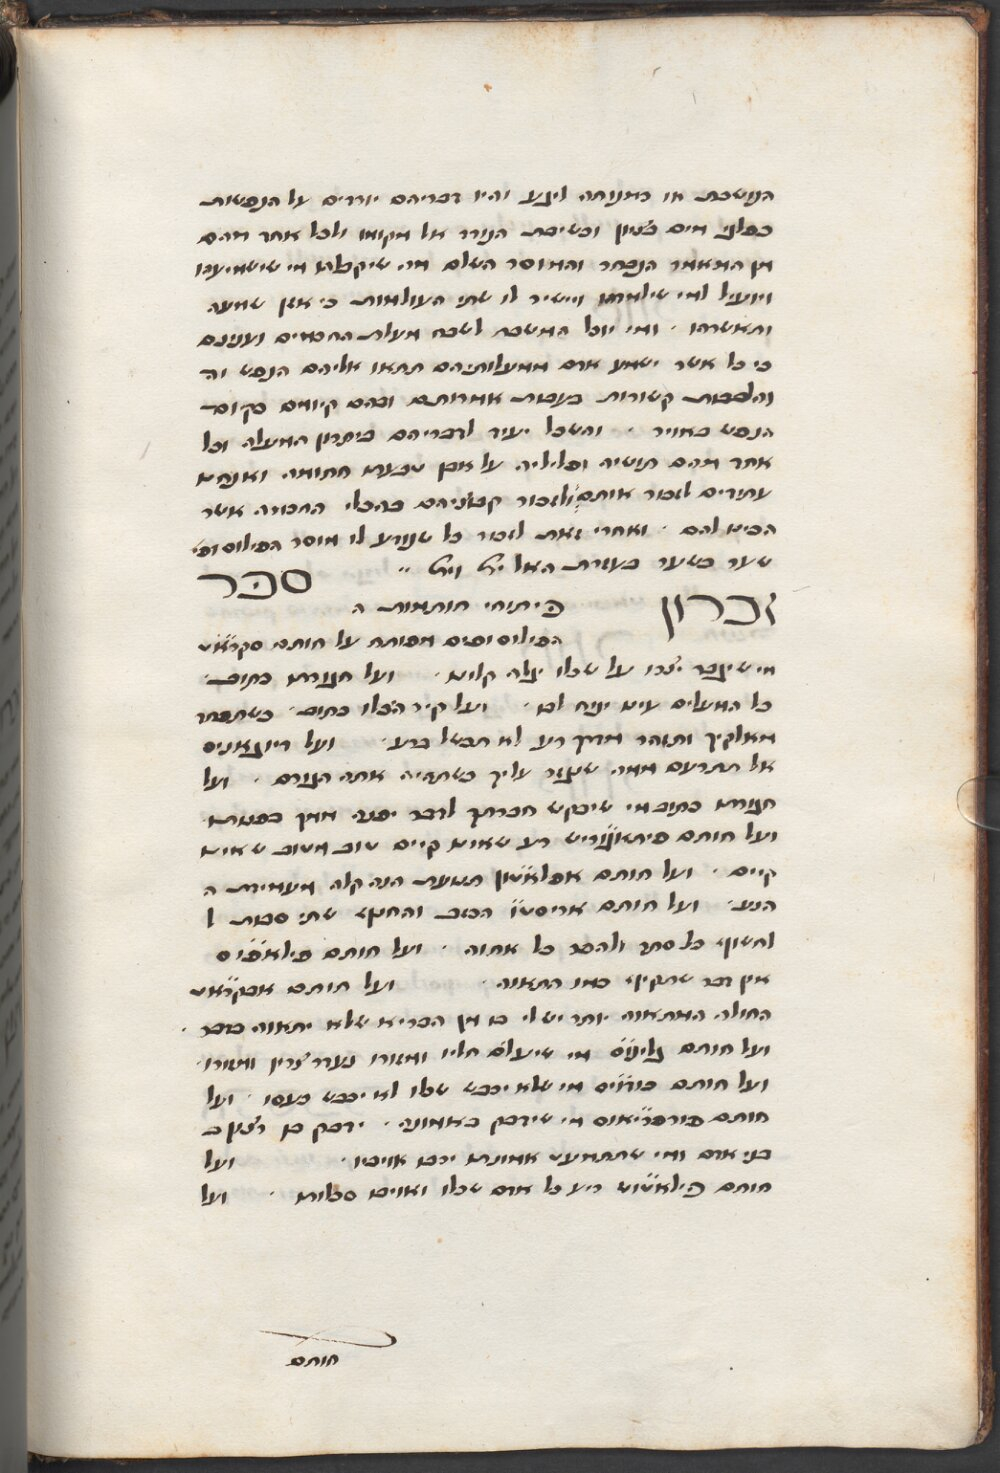 הנושבת או במנוחה ליגע והיו דבריהם יורדים על הנפשות
כפלגי מים בציון וכשיבת הנודד אל מקומו ולכל אחד מהם
מן המאמר הנבחר והמוסר השלם מה שיקבלהו מי שישמיעהו
ויועיל למי שילמדהו ויישיר לו שתי העולמות כי אזן שמעה
ותאשרהו · ומי יוכל המשבח לשבח מעלת החכמים וענינם
כי כל אשר ישמע אדם ממעלותיהם תתאו אליהם הנפש וה
והלבבות קשורות בעבות אמרותם ובהם קיומם כקיום
הנפש באויר · והשכל יעיד לדבריהם ביתרון המעלה וכל
אחד מהם תושיה וכליליה על אבן טבעת חתומה ואנחנו
עתידים לזכור אותם ולזכור קבוציהם בהכלי החכמה אשר
הכינו להם · ואחרי זאת לזכור כל שנודע לו מוסר הפילוסופי'
שער בשער בעזרת האל ית' וית'
ספר
זכרון פיתוחי חותמות ה
הפילוסופים מפותח על חותם סקראט
מי שיגבר יצרו על שכלו יגלה קלונו · ועל חגורתו כתוב ·
כל המעלים עינו ינוח לבו · ועל קיר הכלו כתוב · כשתבחר
מאלקיך ותזהר מדרך רע לא תכשל ברע · ועל דיוגאניס
אל תתרעם ממה שנגזר עליך כשתהיה אתה הגורם · ועל
חגורתו כתוב מי שיבקש חברתך לדבר יסור ממך בסורו
ועל חותם פיתאגוריש רע שאינו קיים טוב מטוב שאינו
קיים · ועל חותם אפלאטון תנועת הנה קלה מעמידת ה
הנע · ועל חותם אריסטו הכזב והחנף שתי סבות ל
לחשוף כל סתר ולהפר כל אחוה · ועל חותם פילאפוס
אין דבר שתקיף כמו התאוה · ועל חותם אבקראט
החולה המתאוה יותר יש לי בו מן הבריא שלא יתאוה בדבר ·
ועל חותם גלינוס מי שיעלם חליו ומומו נעדר צריו ומזורו ·
ועל חותם מי שלא יכבש שכלו לא יכבש כעסו · ועל
חותם פורפריאוס מי שידבק באמונה · ידבק בו רצון ב
בני אדם ומי שתתמעט אמונתו ירבו אויביו · ועל
חותם פילאטוש ריע כל אדם שכלו ואויבו סכלותו · ועל
חותם